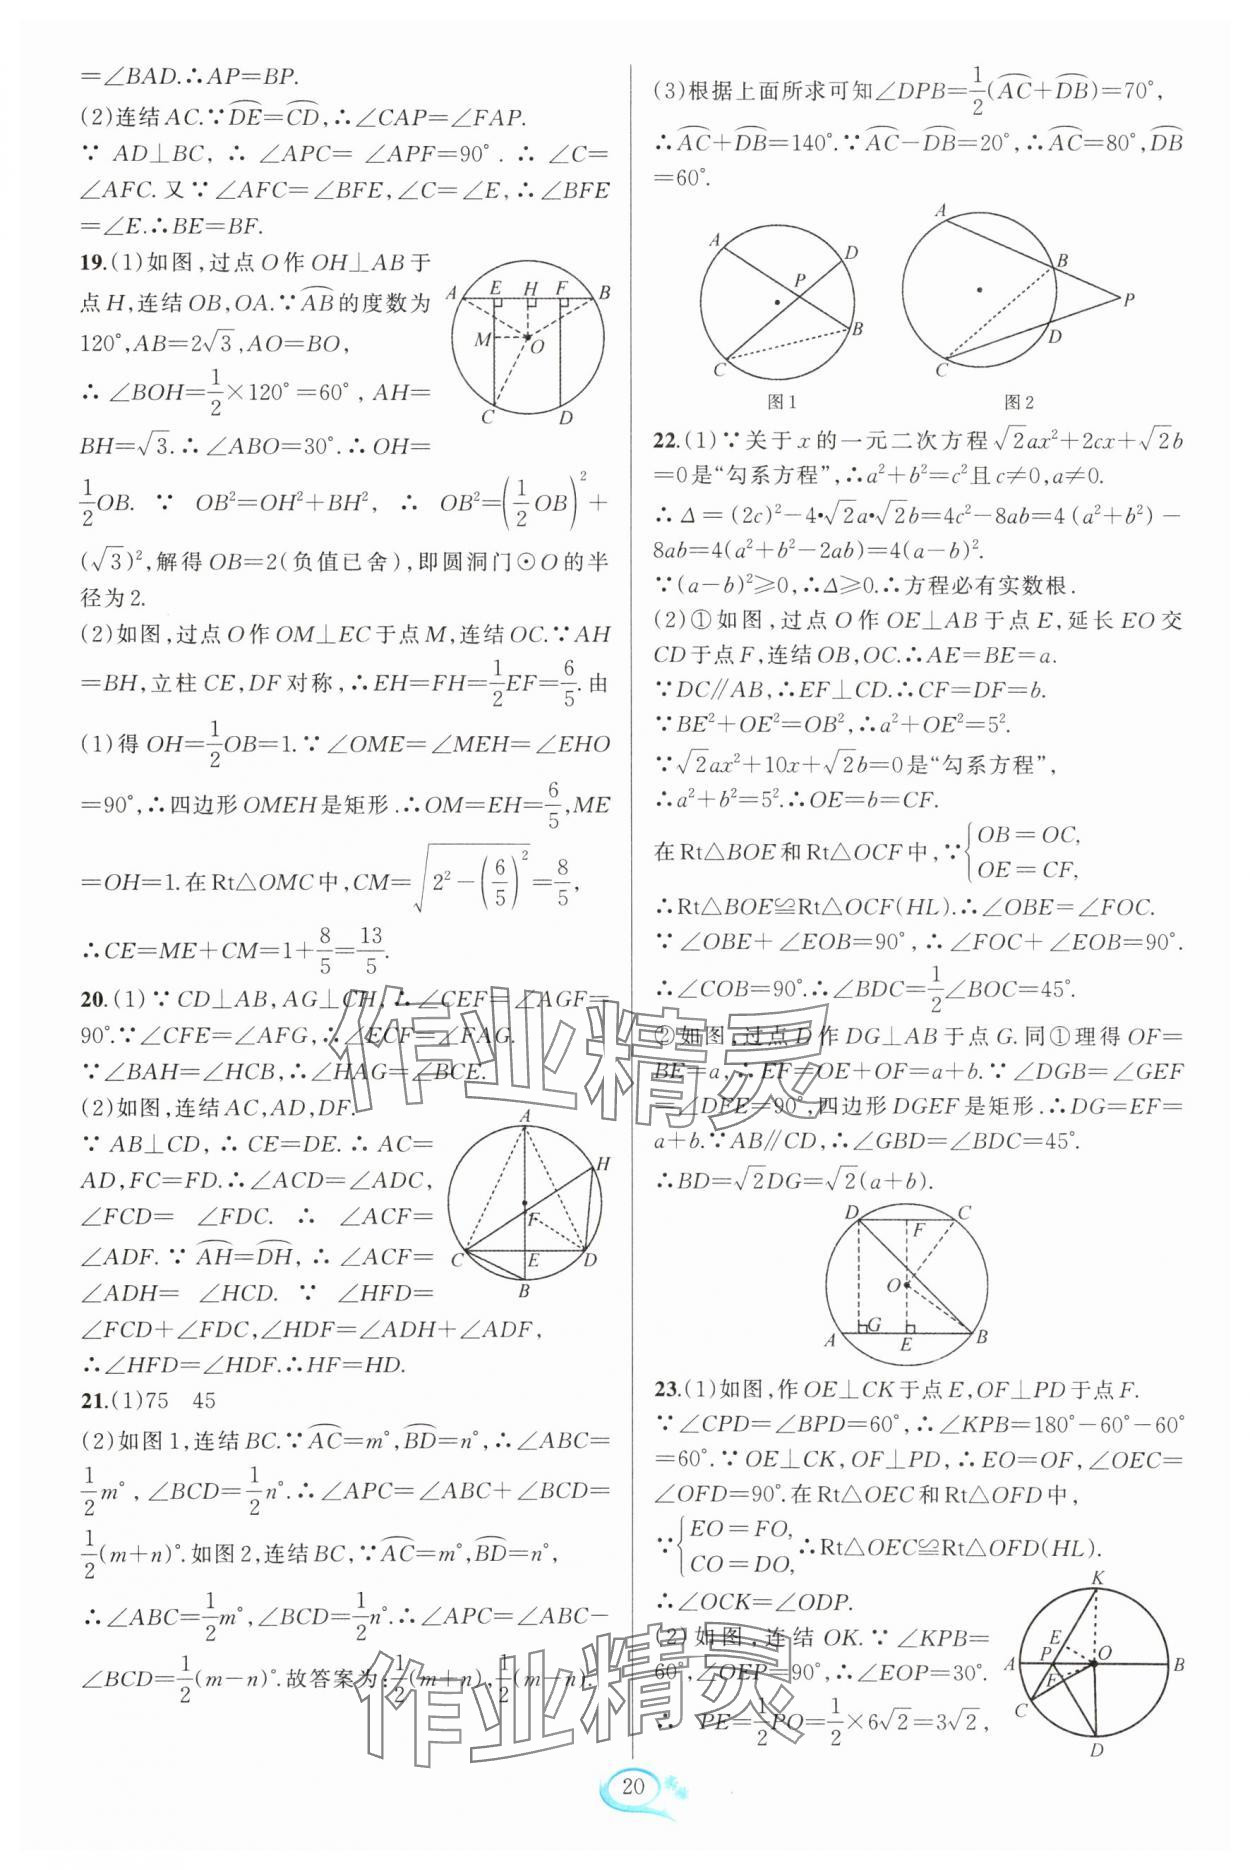 =∠BAD.∴AP=BP.
(2)连结AC.∵⌒DE=⌒CD,∴∠CAP=∠FAP.
∵ AD⊥BC, ∴ ∠APC= ∠APF=90°. ∴ ∠C=
∠AFC.又∵∠AFC=∠BFE,∠C=∠E,∴∠BFE
=∠E.∴BE=BF.
19.(1)如图,过点O作OH⊥AB于
点H,连结OB,OA.∵⌒AB的度数为
120°,AB=2√3,AO=BO,
∴ ∠BOH=1/2×120°=60°, AH=
BH=√3.∴∠ABO=30°.∴OH=
1/2OB. ∵ OB²=OH²+BH², ∴ OB²=(1/2 OB)²+
(√3)²,解得OB=2(负值已舍),即圆洞门⊙O的半
径为2.
(2)如图,过点O作OM⊥EC于点M,连结OC.∵AH
=BH,立柱CE,DF对称,∴EH=FH=1/2EF=6/5.由
(1)得OH=1/2OB=1.∵∠OME=∠MEH=∠EHO
=90°,∴四边形OMEH是矩形.∴OM=EH=6/5,ME
=OH=1.在Rt△OMC中,CM=√(2²-(6/5)²)=8/5,
∴CE=ME+CM=1+8/5=13/5.
A E H F B
M O
C D
20.(1)∵CD⊥AB,AG⊥CH,∴∠CEF=∠AGF=
90°.∵∠CFE=∠AFG,∴∠ECF=∠FAG.
∵∠BAH=∠HCB,∴∠HAG=∠BCE.
(2)如图,连结AC,AD,DF.
∵ AB⊥CD, ∴ CE=DE. ∴ AC=
AD,FC=FD.∴∠ACD=∠ADC,
∠FCD= ∠FDC. ∴ ∠ACF=
∠ADF. ∵ ⌒AH=⌒DH, ∴ ∠ACF=
∠ADH= ∠HCD. ∵ ∠HFD=
∠FCD+∠FDC,∠HDF=∠ADH+∠ADF,
∴∠HFD=∠HDF.∴HF=HD.
A
H
F
C E D
B
21.(1)75 45
(2)如图1,连结BC.∵⌒AC=m°,⌒BD=n°,∴∠ABC=
1/2m°,∠BCD=1/2n°.∴∠APC=∠ABC+∠BCD=
1/2(m+n)°.如图2,连结BC,∵⌒AC=m°,⌒BD=n°,
∴∠ABC=1/2m°,∠BCD=1/2n°.∴∠APC=∠ABC-
∠BCD=1/2(m-n)°.故答案为:1/2(m+n),1/2(m-n).
(3)根据上面所求可知∠DPB=1/2(⌒AC+⌒DB)=70°,
∴⌒AC+⌒DB=140°.∵⌒AC-⌒DB=20°,∴⌒AC=80°,⌒DB
=60°.
A D
P
B
C
图1
A
B
P
D
C
图2
22.(1)∵关于x的一元二次方程√2ax²+2cx+√2b
=0是“勾系方程”,∴a²+b²=c²且c≠0,a≠0.
∴Δ=(2c)²-4•√2a•√2b=4c²-8ab=4(a²+b²)-
8ab=4(a²+b²-2ab)=4(a-b)².
∵(a-b)²≥0,∴Δ≥0.∴方程必有实数根.
(2)①如图,过点O作OE⊥AB于点E,延长EO交
CD于点F,连结OB,OC.∴AE=BE=a.
∵DC∥AB,∴EF⊥CD.∴CF=DF=b.
∵BE²+OE²=OB²,∴a²+OE²=5².
∵√2ax²+10x+√2b=0是“勾系方程”,
∴a²+b²=5².∴OE=b=CF.
在Rt△BOE和Rt△OCF中,∵{OB=OC,
OE=CF,
∴Rt△BOE≌Rt△OCF(HL).∴∠OBE=∠FOC.
∵∠OBE+∠EOB=90°,∴∠FOC+∠EOB=90°.
∴∠COB=90°.∴∠BDC=1/2∠BOC=45°.
②如图,过点D作DG⊥AB于点G.同①理得OF=
BE=a,∴EF=OE+OF=a+b.∵∠DGB=∠GEF
=∠DFE=90°,四边形DGEF是矩形.∴DG=EF=
a+b.∵AB∥CD,∴∠GBD=∠BDC=45°.
∴BD=√2DG=√2(a+b).
D F C
O
A G E B
23.(1)如图,作OE⊥CK于点E,OF⊥PD于点F.
∵∠CPD=∠BPD=60°,∴∠KPB=180°-60°-60°
=60°.∵OE⊥CK,OF⊥PD,∴EO=OF,∠OEC=
∠OFD=90°.在Rt△OEC和Rt△OFD中,
∵{EO=FO,
CO=DO,∴Rt△OEC≌Rt△OFD(HL).
∴∠OCK=∠ODP.
(2)如图,连结OK.∵∠KPB=
60°,∠OEP=90°,∴∠EOP=30°.
∴ PE=1/2PO=1/2×6√2=3√2,
K
E
A P O B
F
C
D
作业精灵
作业精灵
20